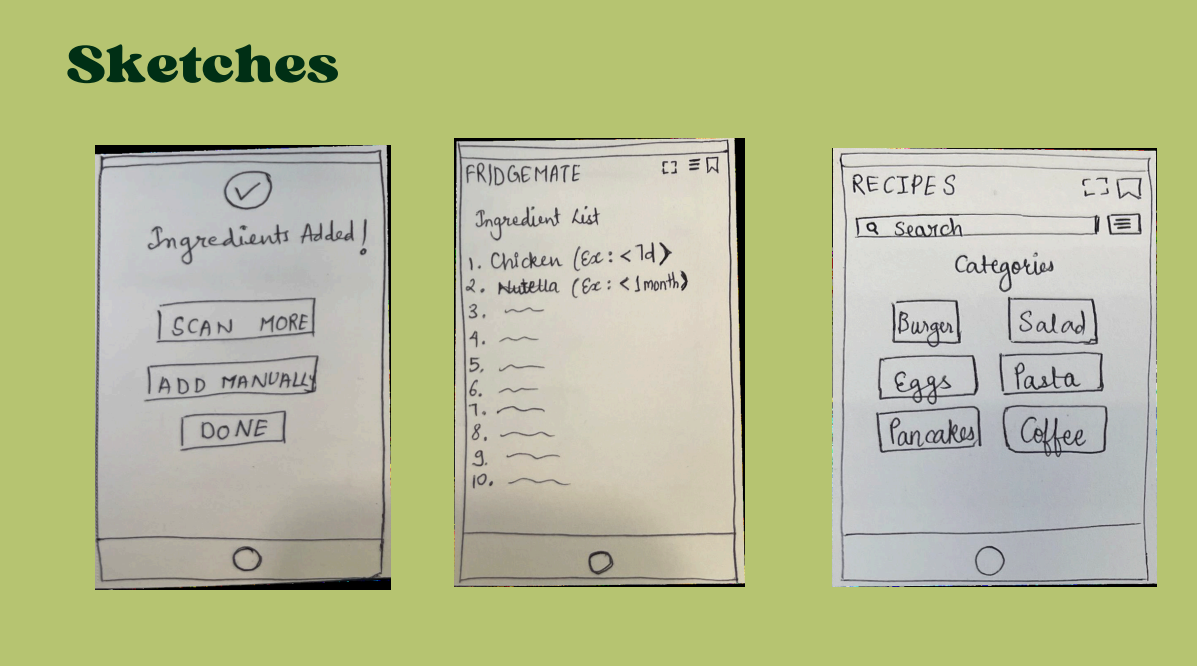 Sketches
Ingredients Added!
SCAN MORE
ADD MANUALLY
DONE
FRIDGEMATE
Ingredient List
1. Chicken (Ex: < 7d)
2. Nutella (Ex: < 1 month)
3.
4.
5.
6.
7.
8.
9.
10.
RECIPES
Search
Categories
Burger Salad
Eggs Pasta
Pancakes Coffee